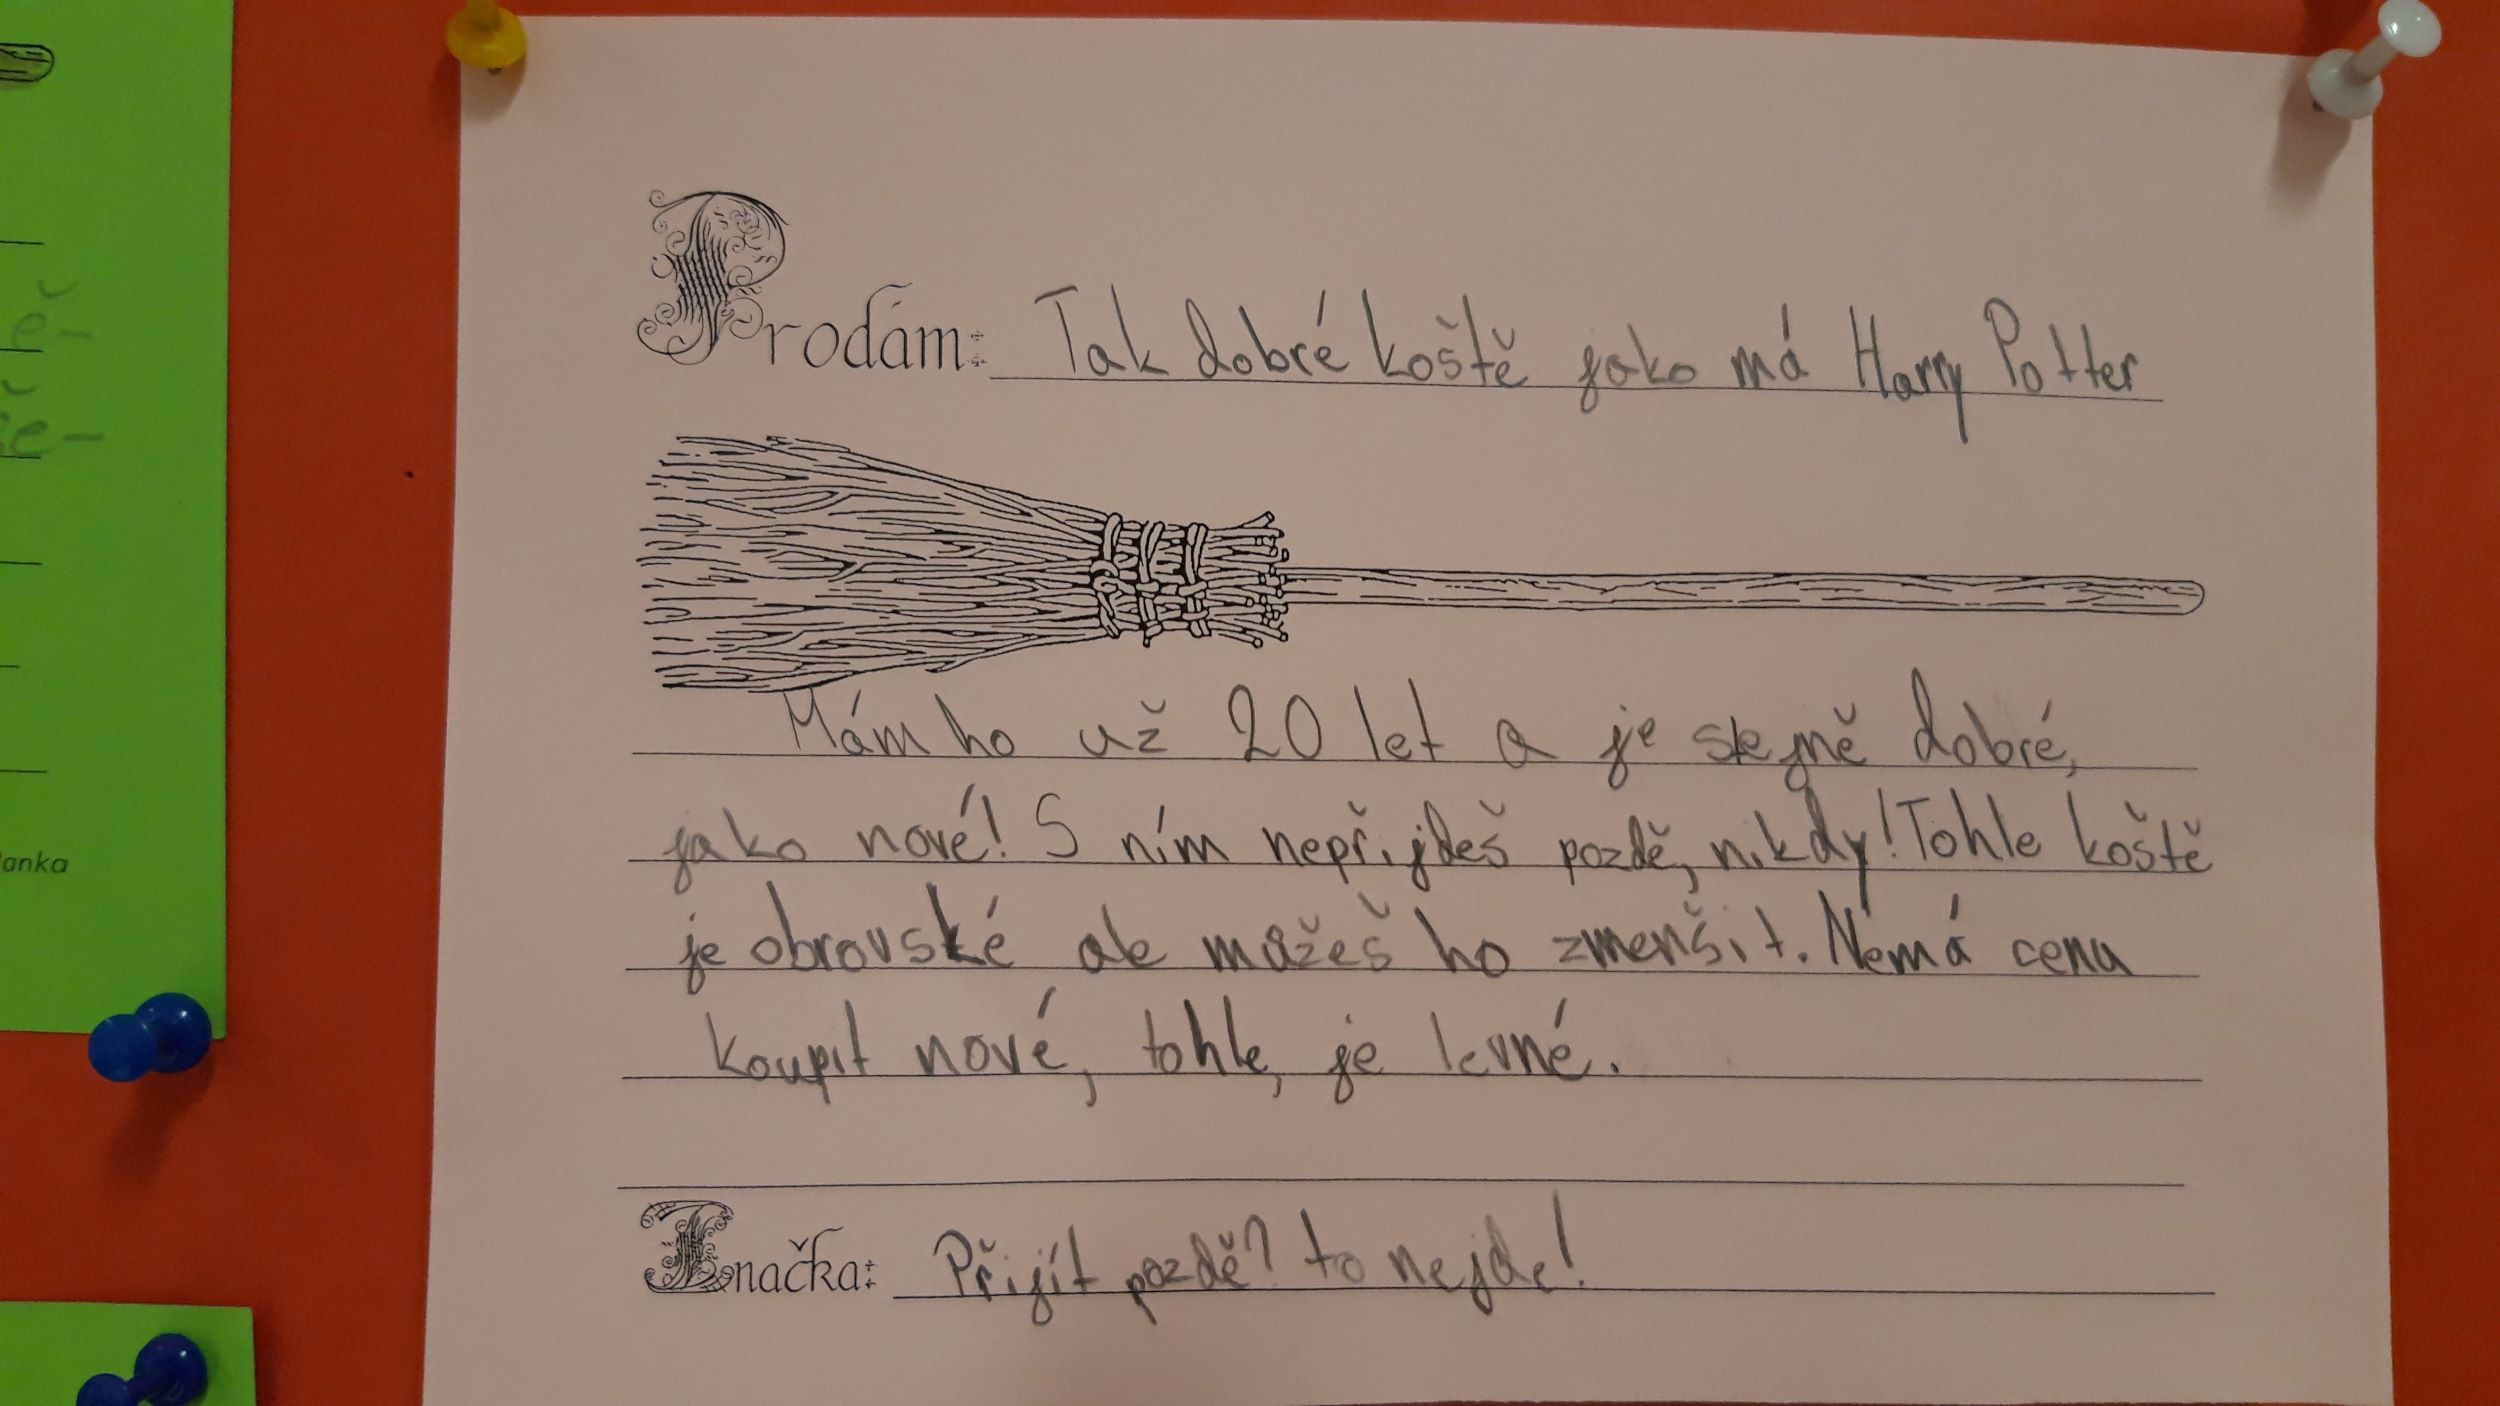 Prodám: Tak dobré koště jako má Harry Potter
Mám ho už 20 let a je stejně dobré,
jako nové! S ním nepřijdeš pozdě, nikdy! Tohle koště
je obrovské ale můžeš ho zmenšit. Nemá cena
koupit nové, tohle, je levné.
Značka: Přijít pozdě? to nejde!
ě-
anka